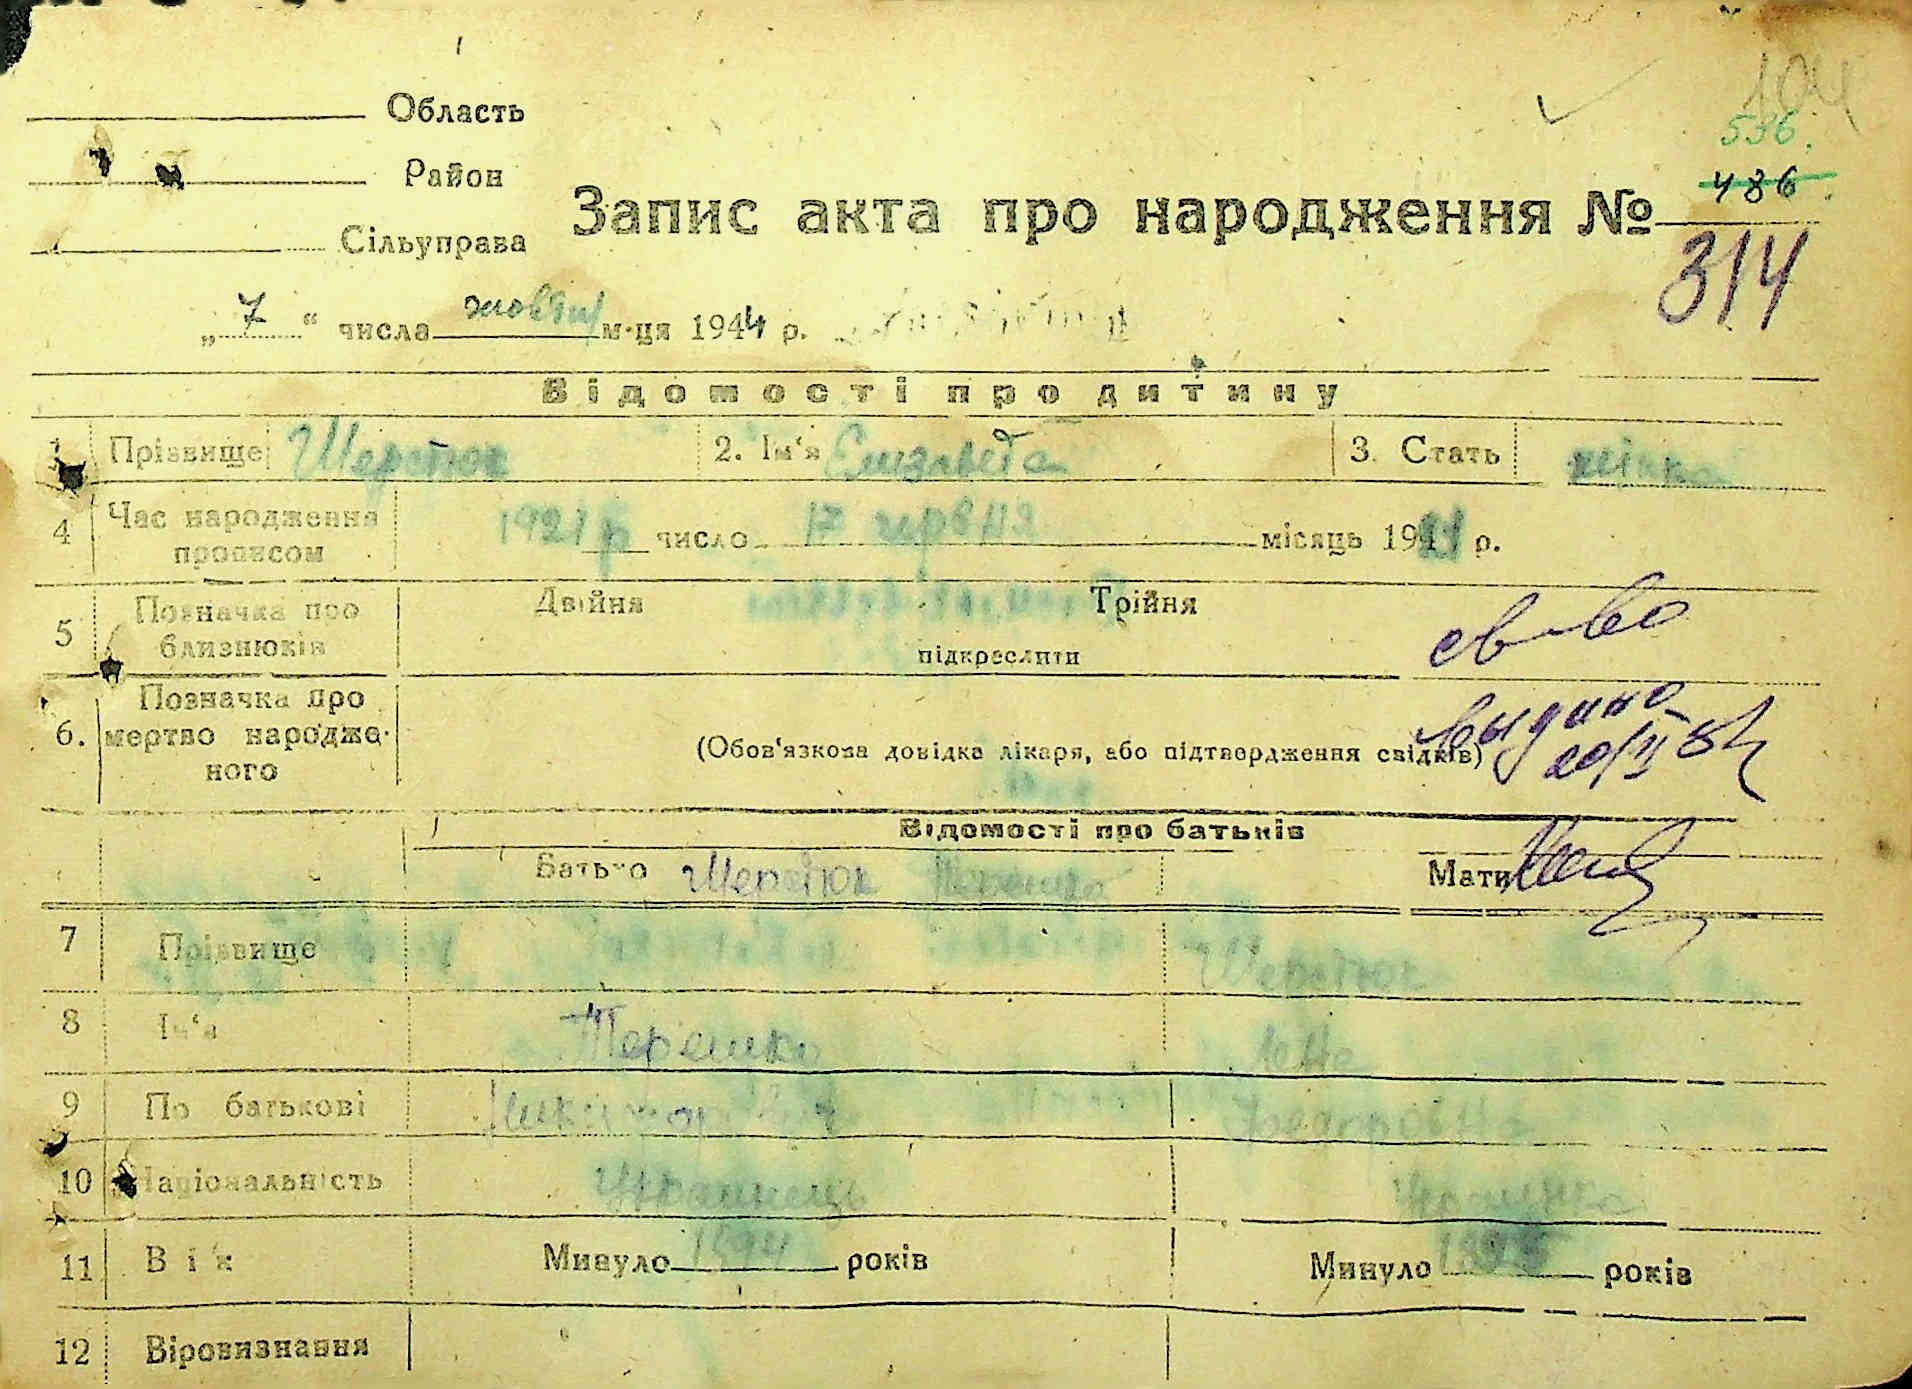 104
Область
536.
Район
486.
Запис акта про народження №
Сільуправа
314
„ 7 “ числа жовтня м-ця 1944 р.
Відомості про дитину
1 Прізвище Шеретюк 2. Ім‘я Елизавета 3. Стать жінка
4 Час народження прописом 1921 р число 17 червня місяць 1921 р.
5 Позначка про близнюків Двійня Трійня
підкреслити
св-во
6. Позначка про мертво народженого
(Обов‘язкова довідка лікаря, або підтвердження свідків)
выдано
20/II
Відомості про батьків
Батько Шеретюк Терешко Мати
7 Прізвище Шеретюк
8 Ім‘я Терешко
9 По батькові
10 Національність Українець Українка
11 Вік Минуло 1894 років Минуло 1895 років
12 Віровизнання